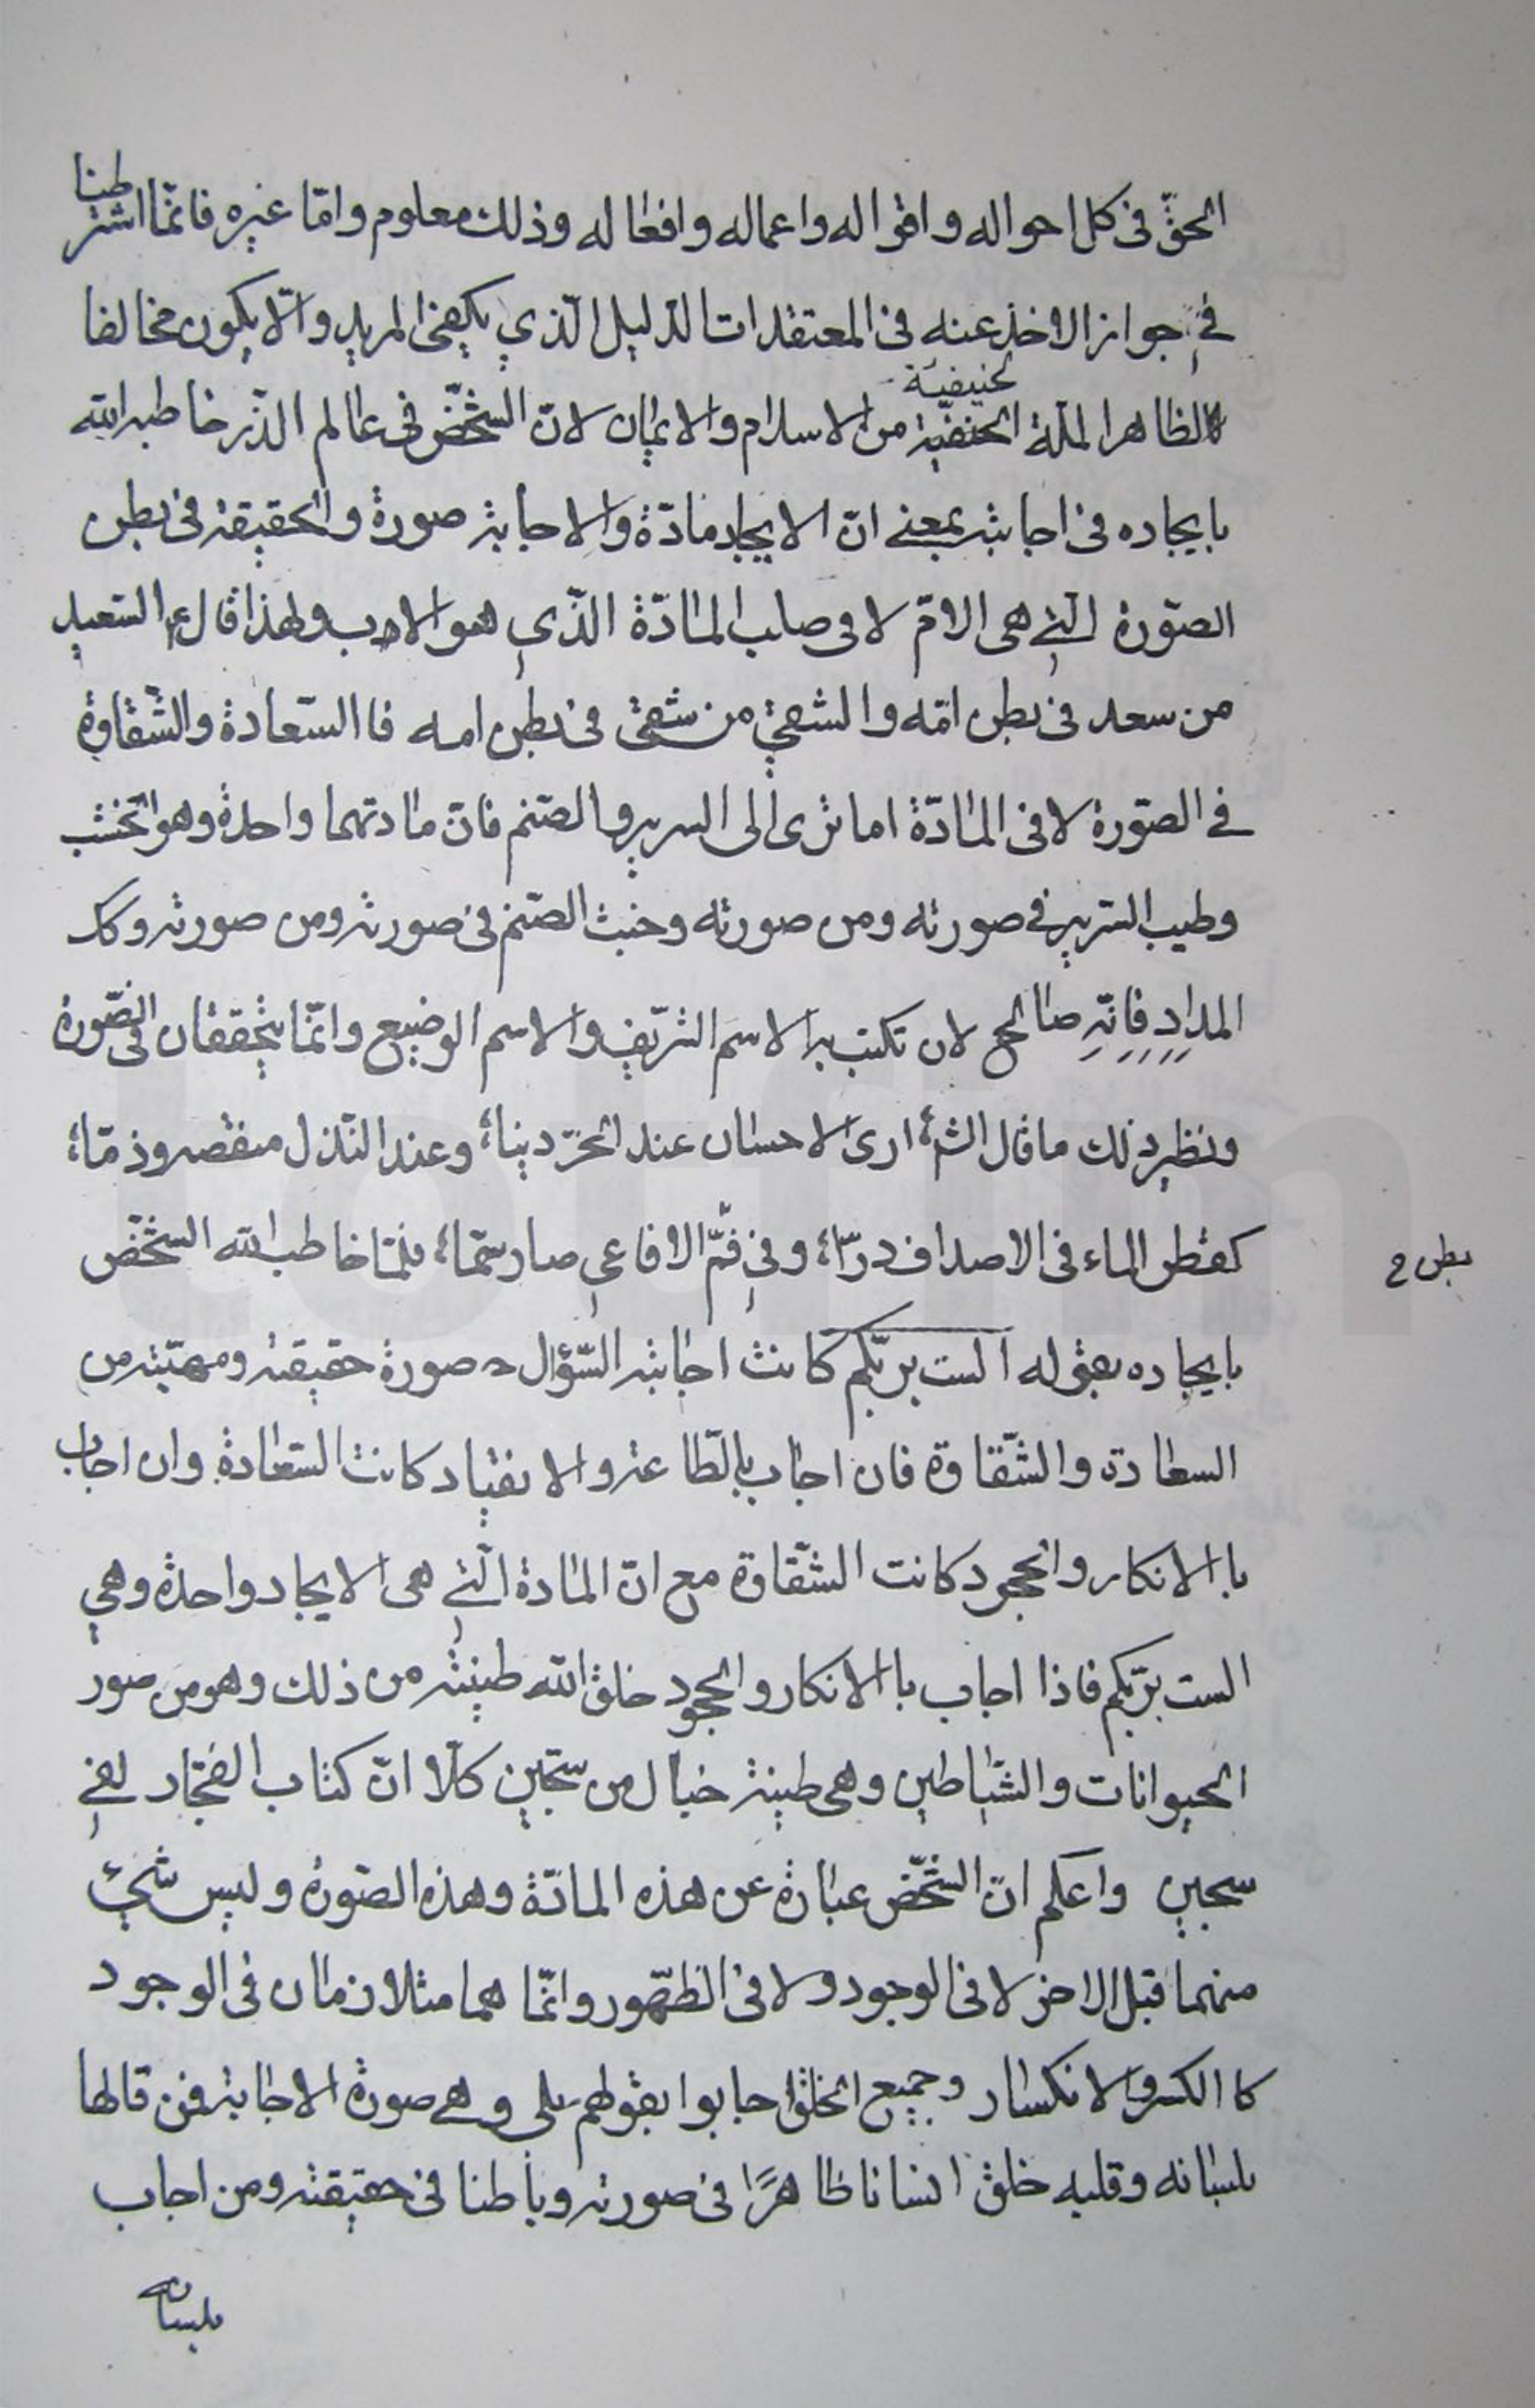 الحقّ فى كل احواله و اقواله واعماله وافعاله وذلك معلوم وامّا غيره فانمّا اشترطنا
فى جواز الاخذ عنه فى المعتقدات الدليل الّذي يكفى المريد والّا يكون مخالفا
حنيفيّة
لالظاهر الملّة الحنفيّة من الاسلام والايمان لانّ الشخّص فى عالم الذّر خاطبه الله
بايجاده فى اجابته بمعنے انّ الايجاد مادّة والاجابة صورة والحقيقة فى بطن
الصّورة الّتے هى الامّ لا فى صلب المادّة الّذي هو الاب ولهذا قال ع السّعيد
من سعد فى بطن امّه والشقي من شقى فى بطن امه فا السّعادة والشّقاوة
فے الصّورة لا فى المادّة اما ترى الى السرير والصّنم فانّ مادتهما واحدة وهو الخشب
وطيب السّرير فے صورته ومن صورته وخبث الصّنم فى صورته ومن صورته وكك
المداد فانّه صالح لان تكتب به الاسم الشّريف والاسم الوضيع وانّما يتحققان فى الصّورة
ونظير ذلك ما قال الش؛ ارى الاحسان عند الحرّ دينا؛ وعند النّذل منقصه وذمّا؛
كقطر الماء فى الاصداف درّا؛ وفى فمّ الافاعي صار سمّا؛ فلمّا خاطب الله الشخّص
بطن م
بايجاده بقوله الست بربّكم كانت اجابته السّؤال د صورة حقيقته ومهيّته من
السعادة والشّقاوة فان اجاب بالطّاعة والانقياد كانت السّعادة وان اجاب
با الانكار والجحود كانت الشّقاوة مع انّ المادة الّتے هى الايجاد واحدة وهي
الست بربّكم فاذا اجاب با الانكار والجحود خلق الله طينته من ذلك وهو من صور
الحيوانات والشّياطين وهى طينة خبال من سجّين كلّا انّ كتاب الفجّار لفے
سجين واعلم انّ الشخّص عبارة عن هذه المادّة وهذه الصّورة وليس شئ
منهما قبل الاخر لا فى الوجود ولا فى الظّهور وانمّا هما متلازمان فى الوجود
كا الكسر والانكسار وجميع الخلق اجابوا بقولهم بلى وهے صورة الاجابة فمن قالها
بلسانه وقلبه خلق انسانا ظاهرًا فى صورته وباطنا فى حقيقته ومن اجاب
بلسانه